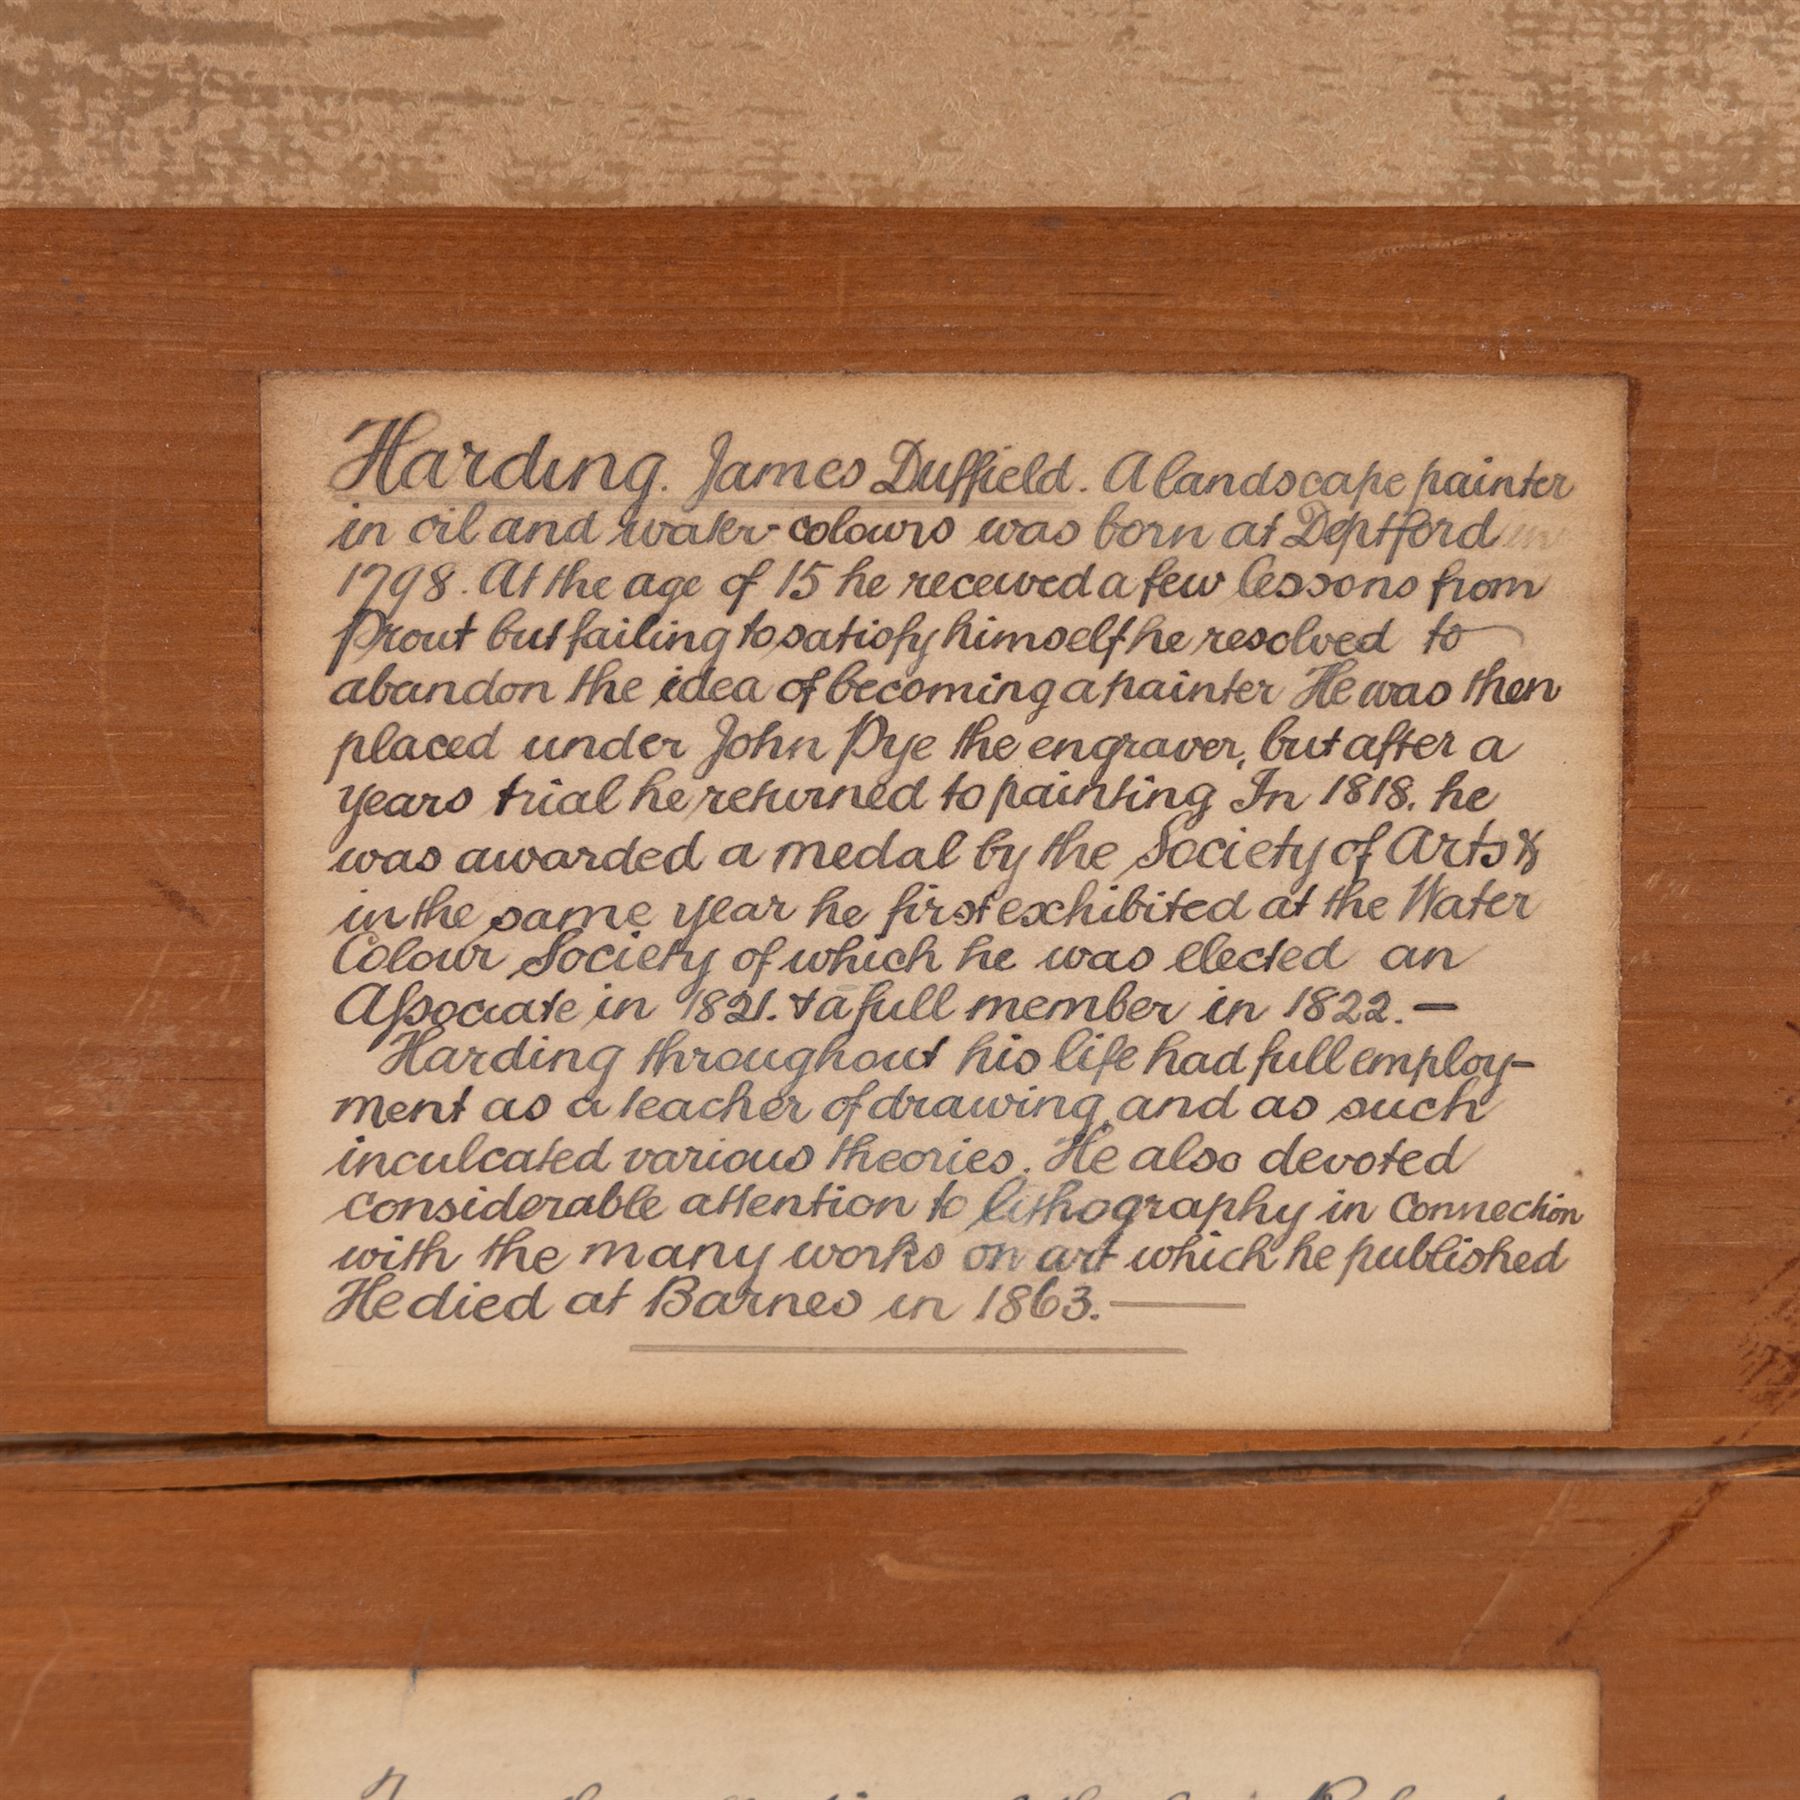 Harding. James Duffield. A landscape painter
in oil and water-colours was born at Deptford in
1798. At the age of 15 he received a few lessons from
Prout but failing to satisfy himself he resolved to
abandon the idea of becoming a painter He was then
placed under John Pye the engraver, but after a
years trial he returned to painting In 1818. he
was awarded a medal by the Society of Arts &
in the same year he first exhibited at the Water
Colour Society of which he was elected an
Aſsociate in 1821. & a full member in 1822. —
Harding throughout his life had full employ-
ment as a teacher of drawing and as such
inculcated various theories. He also devoted
considerable attention to lithography in connection
with the many works on art which he published
He died at Barnes in 1863. —